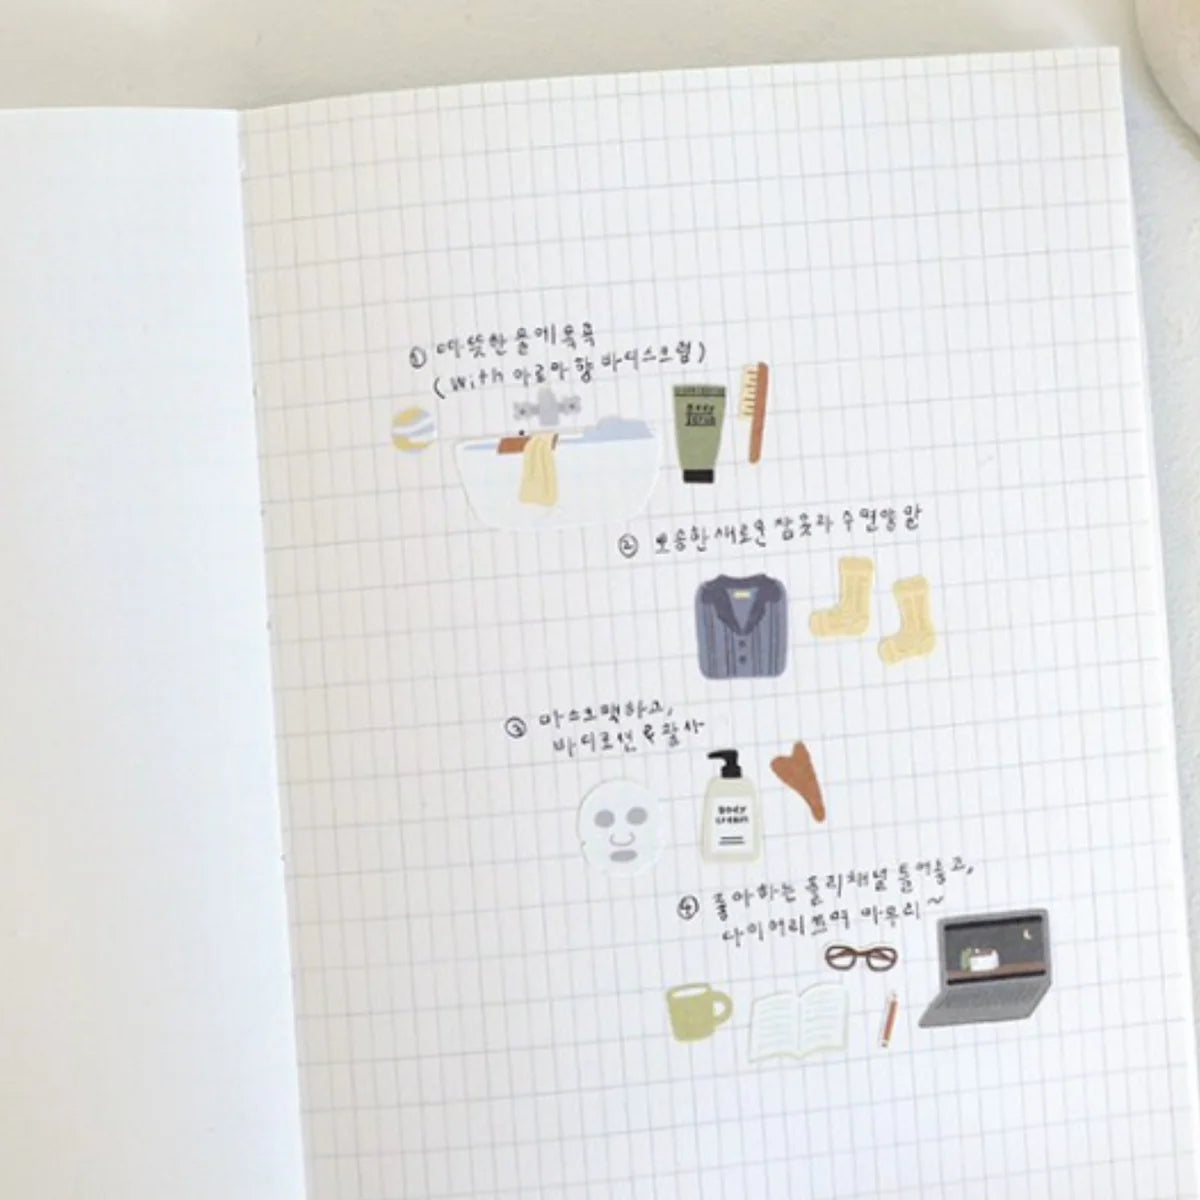 ① 따뜻한 물에 목욕
(with 아로마 향 바디스크럽)
Body
Scrub
② 뽀송한 새로운 잠옷과 수면양말
③ 마스크팩하고,
바디로션 & 괄사
BODY
cream
④ 좋아하는 플리채널 틀어놓고,
다이어리 쓰며 마무리~